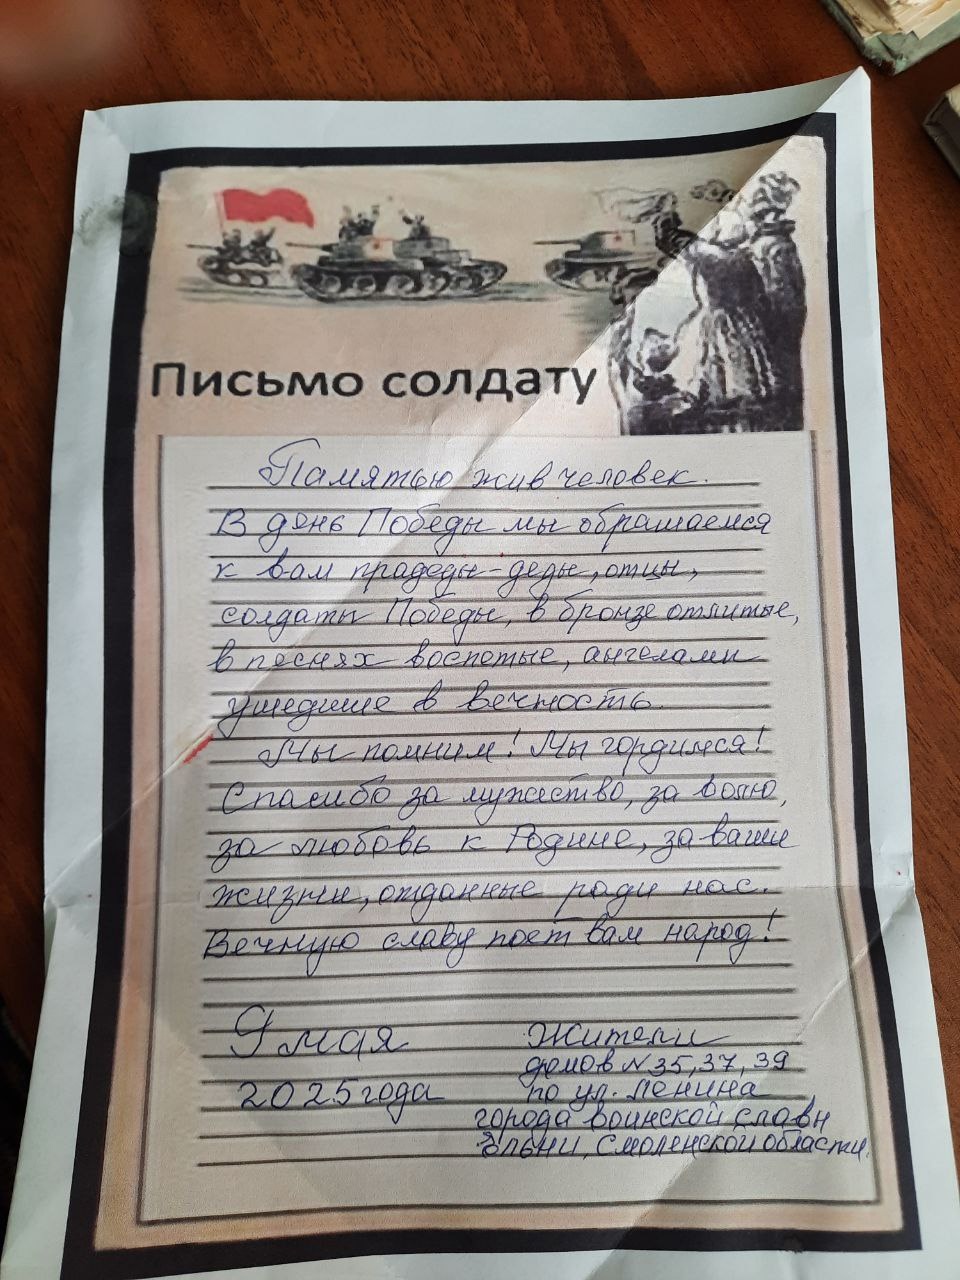 Письмо солдату
Памятью жив человек.
В день Победы мы обращаемся
к вам прадеды-деды, отцы,
солдаты Победы, в бронзе отлитые,
в песнях воспетые, ангелами
ушедшие в вечность.
Мы помним! Мы гордимся!
Спасибо за мужество, за волю,
за любовь к Родине, за ваши
жизни, отданные ради нас.
Вечную славу поёт вам народ!
9 мая
2025 года
Жители
домов №35, 37, 39
по ул. Ленина
города воинской славы
Ельни, Смоленской области.